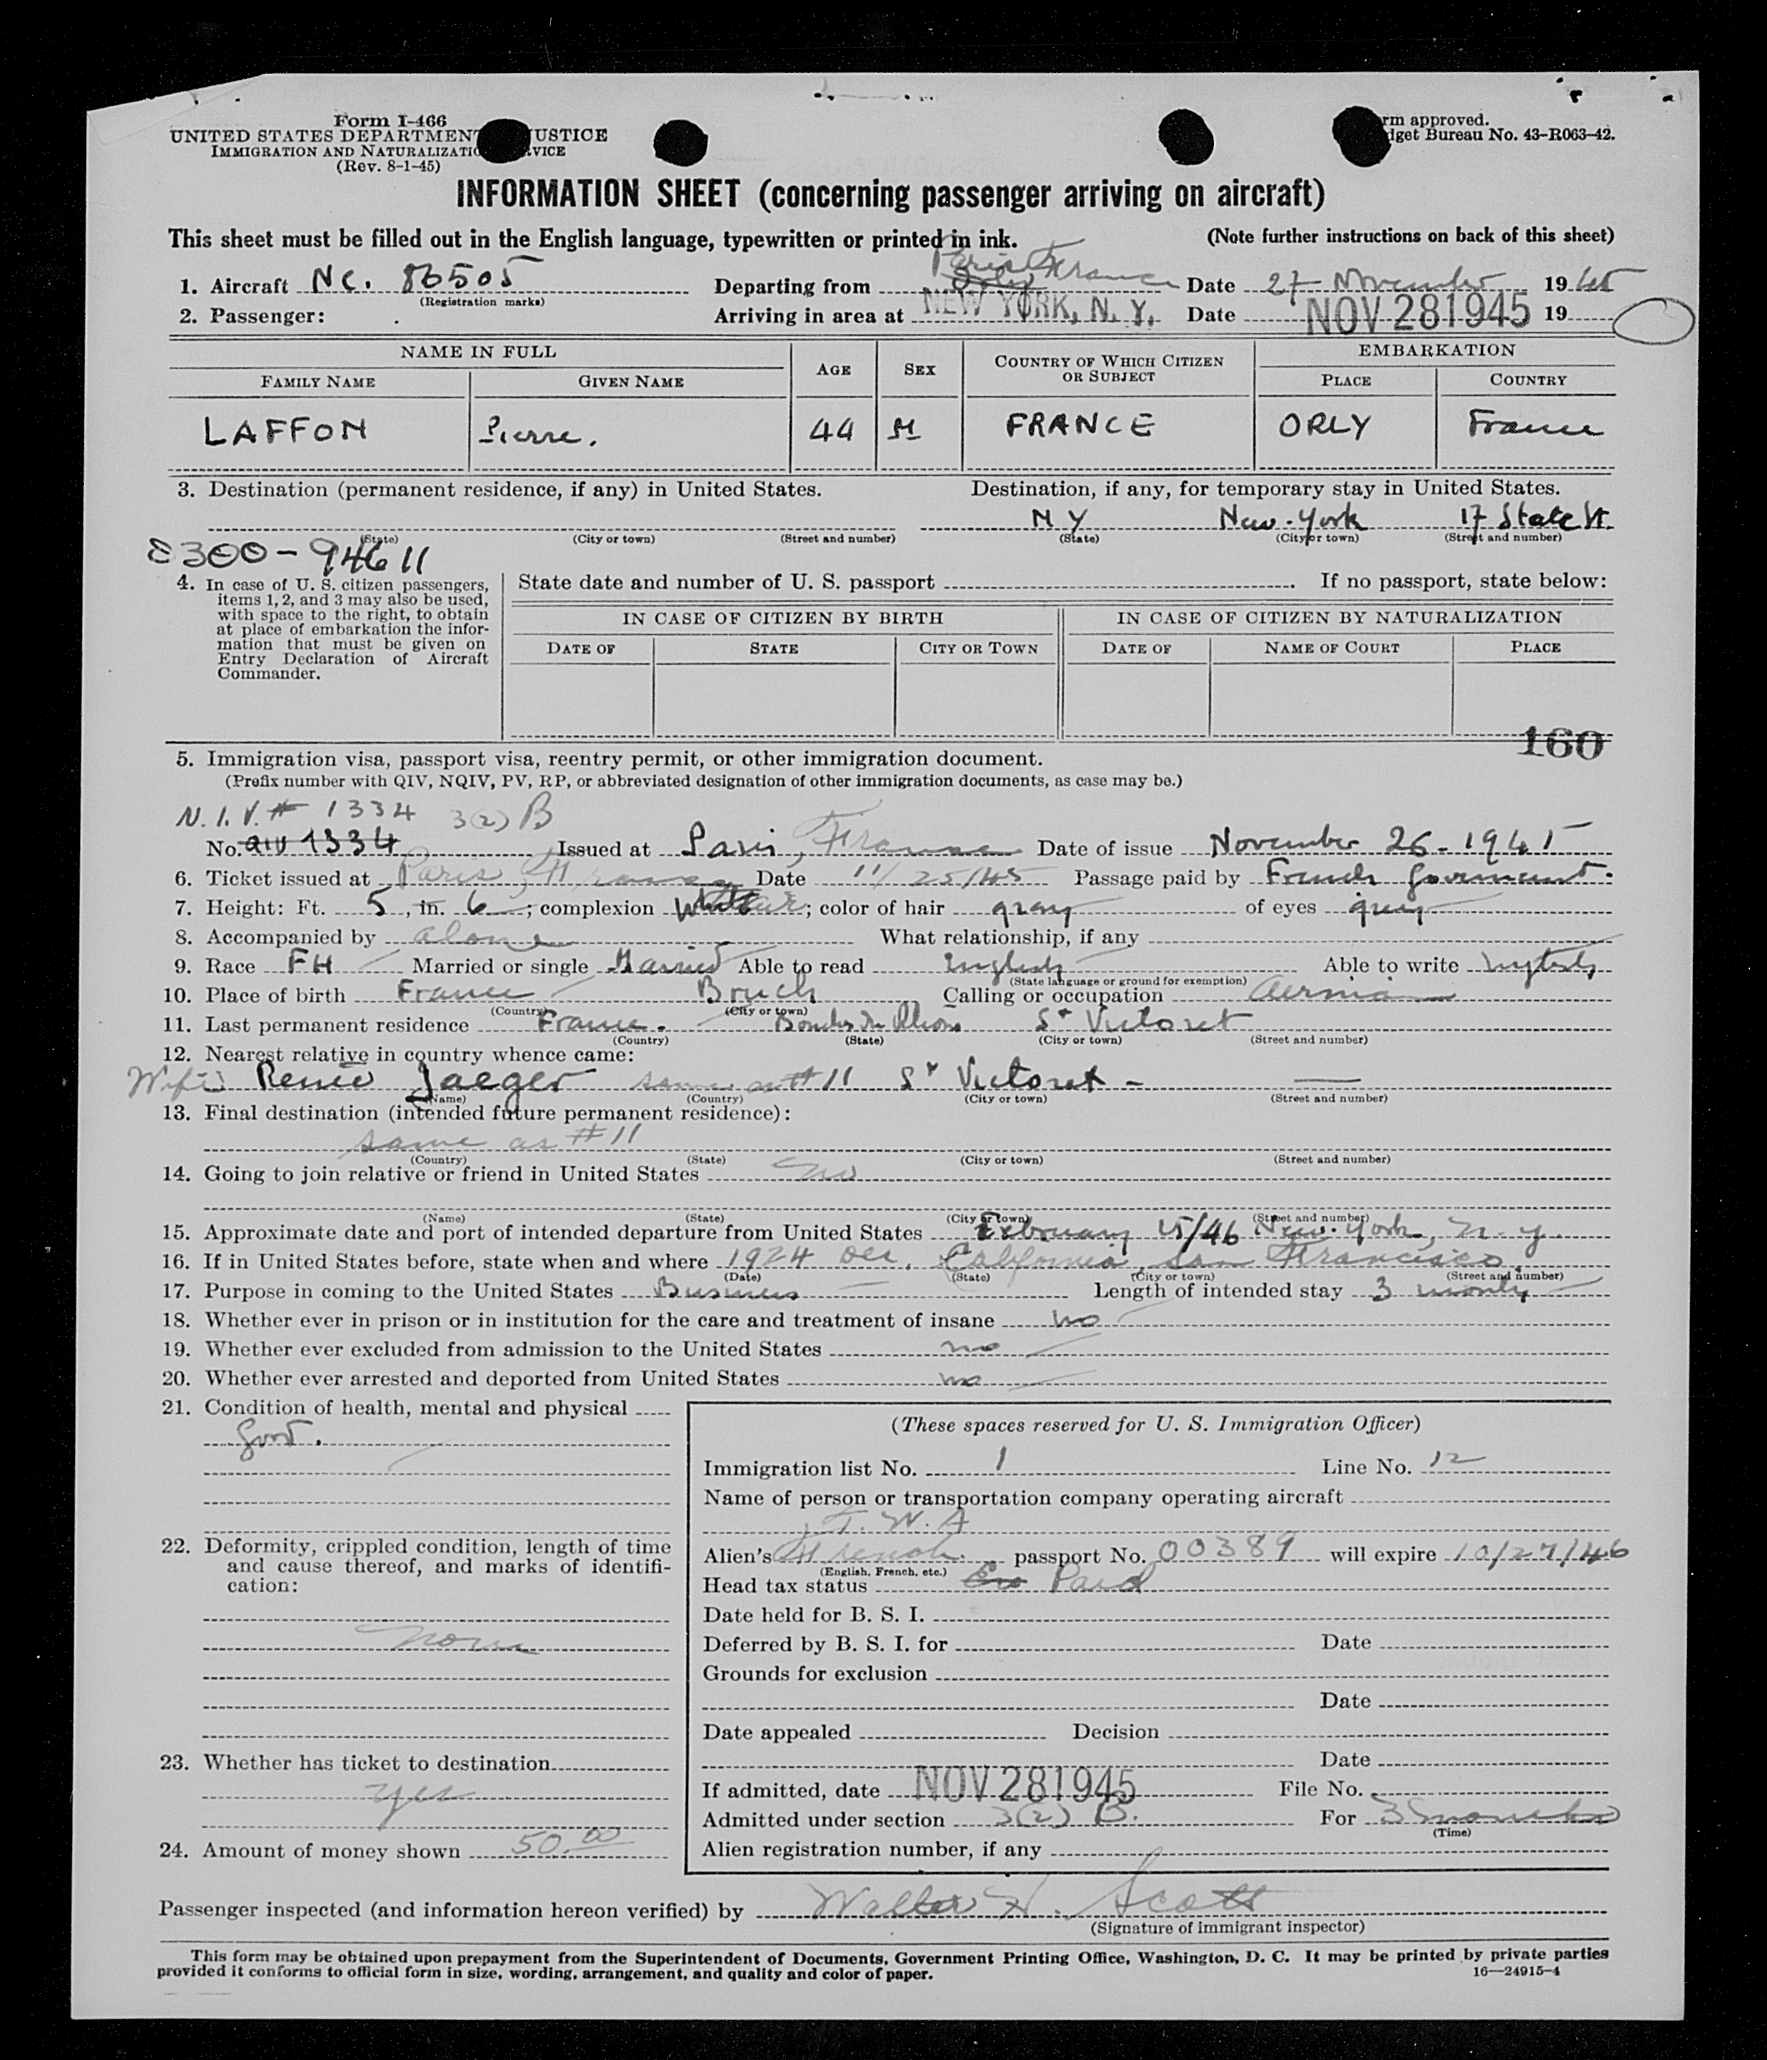 Form I-466
UNITED STATES DEPARTMENT USTICE
IMMIGRATION AND NATURALIZATIO VICE
(Rev. 8-1-45)
rm approved.
dget Bureau No. 43-R063-42.
INFORMATION SHEET (concerning passenger arriving on aircraft)
This sheet must be filled out in the English language, typewritten or printed in ink. (Note further instructions on back of this sheet)
1. Aircraft NC. 86505 Departing from Paris France Date 27 November 1945
(Registration marks)
2. Passenger: Arriving in area at NEW YORK, N. Y. Date NOV 28 1945 19
NAME IN FULL AGE SEX COUNTRY OF WHICH CITIZEN OR SUBJECT EMBARKATION
FAMILY NAME GIVEN NAME PLACE COUNTRY
LAFFON Pierre. 44 M FRANCE ORLY France
3. Destination (permanent residence, if any) in United States. Destination, if any, for temporary stay in United States.
N Y New-York 17 State St.
(State) (City or town) (Street and number) (State) (City or town) (Street and number)
300-94611
4. In case of U. S. citizen passengers, items 1, 2, and 3 may also be used, with space to the right, to obtain at place of embarkation the information that must be given on Entry Declaration of Aircraft Commander.
State date and number of U. S. passport . If no passport, state below:
IN CASE OF CITIZEN BY BIRTH IN CASE OF CITIZEN BY NATURALIZATION
DATE OF STATE CITY OR TOWN DATE OF NAME OF COURT PLACE
160
5. Immigration visa, passport visa, reentry permit, or other immigration document.
(Prefix number with QIV, NQIV, PV, RP, or abbreviated designation of other immigration documents, as case may be.)
N. I. V. # 1334 3(2) B
No. QIV 1334 Issued at Paris, France Date of issue November 26-1945
6. Ticket issued at Paris, France Date 11/25/45 Passage paid by French Government.
7. Height: Ft. 5, in. 6; complexion color of hair gray of eyes grey
8. Accompanied by alone What relationship, if any
9. Race FH Married or single Married Able to read English Able to write
(State language or ground for exemption)
10. Place of birth France Bruch Calling or occupation
(Country) (City or town)
11. Last permanent residence France. Bouches du Rhone St Victoret
(Country) (State) (City or town) (Street and number)
12. Nearest relative in country whence came:
Wife Renée Jaeger same as # 11 St Victoret -
(Name) (Country) (City or town) (Street and number)
13. Final destination (intended future permanent residence):
same as # 11
(Country) (State) (City or town) (Street and number)
14. Going to join relative or friend in United States no
(Name) (State) (City or town) (Street and number)
15. Approximate date and port of intended departure from United States February 15/46 New-York, N. Y.
16. If in United States before, state when and where 1924 Dec. California, San Francisco
(Date) (State) (City or town) (Street and number)
17. Purpose in coming to the United States Business Length of intended stay 3 months
18. Whether ever in prison or in institution for the care and treatment of insane no
19. Whether ever excluded from admission to the United States no
20. Whether ever arrested and deported from United States no
21. Condition of health, mental and physical
Good.
22. Deformity, crippled condition, length of time and cause thereof, and marks of identification:
none
23. Whether has ticket to destination
yes
24. Amount of money shown 50.00
(These spaces reserved for U. S. Immigration Officer)
Immigration list No. 1 Line No. 12
Name of person or transportation company operating aircraft
T. W. A
Alien's French passport No. 00389 will expire 10/27/46
(English, French, etc.)
Head tax status Paid
Date held for B. S. I.
Deferred by B. S. I. for Date
Grounds for exclusion
Date
Date appealed Decision
Date
If admitted, date NOV 28 1945 File No.
Admitted under section 3(2) B. For 3 months
(Time)
Alien registration number, if any
Passenger inspected (and information hereon verified) by Walter H. Scott
(Signature of immigrant inspector)
This form may be obtained upon prepayment from the Superintendent of Documents, Government Printing Office, Washington, D. C. It may be printed by private parties
provided it conforms to official form in size, wording, arrangement, and quality and color of paper.
16—24915-4